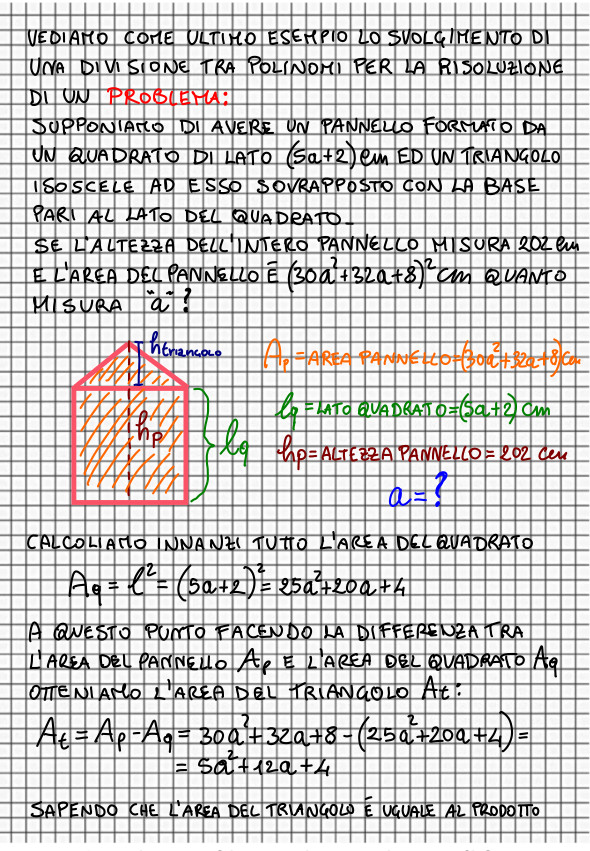 VEDIAMO COME ULTIMO ESEMPIO LO SVOLGIMENTO DI
UNA DIVISIONE TRA POLINOMI PER LA RISOLUZIONE
DI UN PROBLEMA:
SUPPONIAMO DI AVERE UN PANNELLO FORMATO DA
UN QUADRATO DI LATO (5a+2) cm ED UN TRIANGOLO
ISOSCELE AD ESSO SOVRAPPOSTO CON LA BASE
PARI AL LATO DEL QUADRATO.
SE L'ALTEZZA DELL'INTERO PANNELLO MISURA 202 cm
E L'AREA DEL PANNELLO È (30a²+32a+8)² cm QUANTO
MISURA "a"?
h triangolo
Ap = AREA PANNELLO = (30a²+32a+8) cm
hp
lq
lq = LATO QUADRATO = (5a+2) cm
hp = ALTEZZA PANNELLO = 202 cm
a = ?
CALCOLIAMO INNANZI TUTTO L'AREA DEL QUADRATO
Aq = l² = (5a+2)² = 25a²+20a+4
A QUESTO PUNTO FACENDO LA DIFFERENZA TRA
L'AREA DEL PANNELLO Ap E L'AREA DEL QUADRATO Aq
OTTENIAMO L'AREA DEL TRIANGOLO At:
At = Ap - Aq = 30a²+32a+8 - (25a²+20a+4) =
= 5a²+12a+4
SAPENDO CHE L'AREA DEL TRIANGOLO È UGUALE AL PRODOTTO